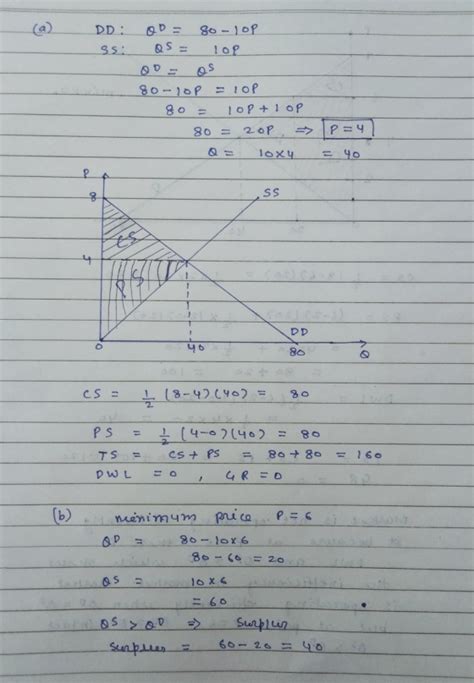 (a) DD: QD = 80-10P
SS: QS = 10P
QD = QS
80-10P = 10P
80 = 10P+10P
80 = 20P ⇒ P=4
Q = 10x4 = 40
P
8
SS
CS
4
PS
DD
0
40
80
Q
CS = 1/2 (8-4)(40) = 80
PS = 1/2 (4-0)(40) = 80
TS = CS + PS = 80+80 = 160
DWL = 0, GR=0
(b) minimum price P=6
QD = 80-10x6
80-60 = 20
QS = 10x6
= 60
QS > QD ⇒ Surplus
Surplus = 60-20 = 40